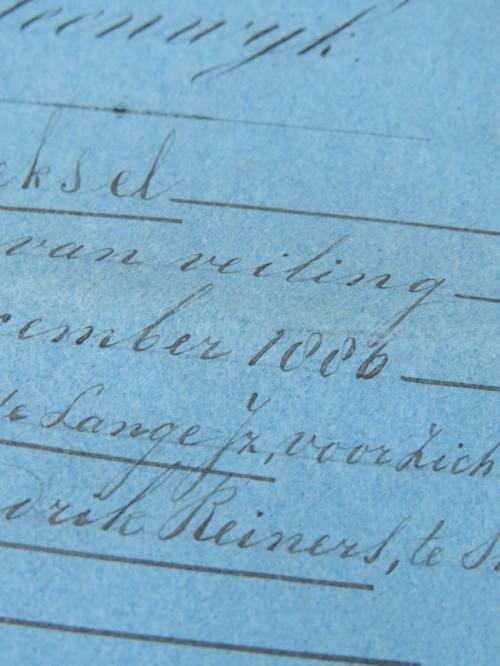 eenwijk.
eksel
van veiling
cember 1886
de Lange Jr, voor zich
drik Reiners, te S